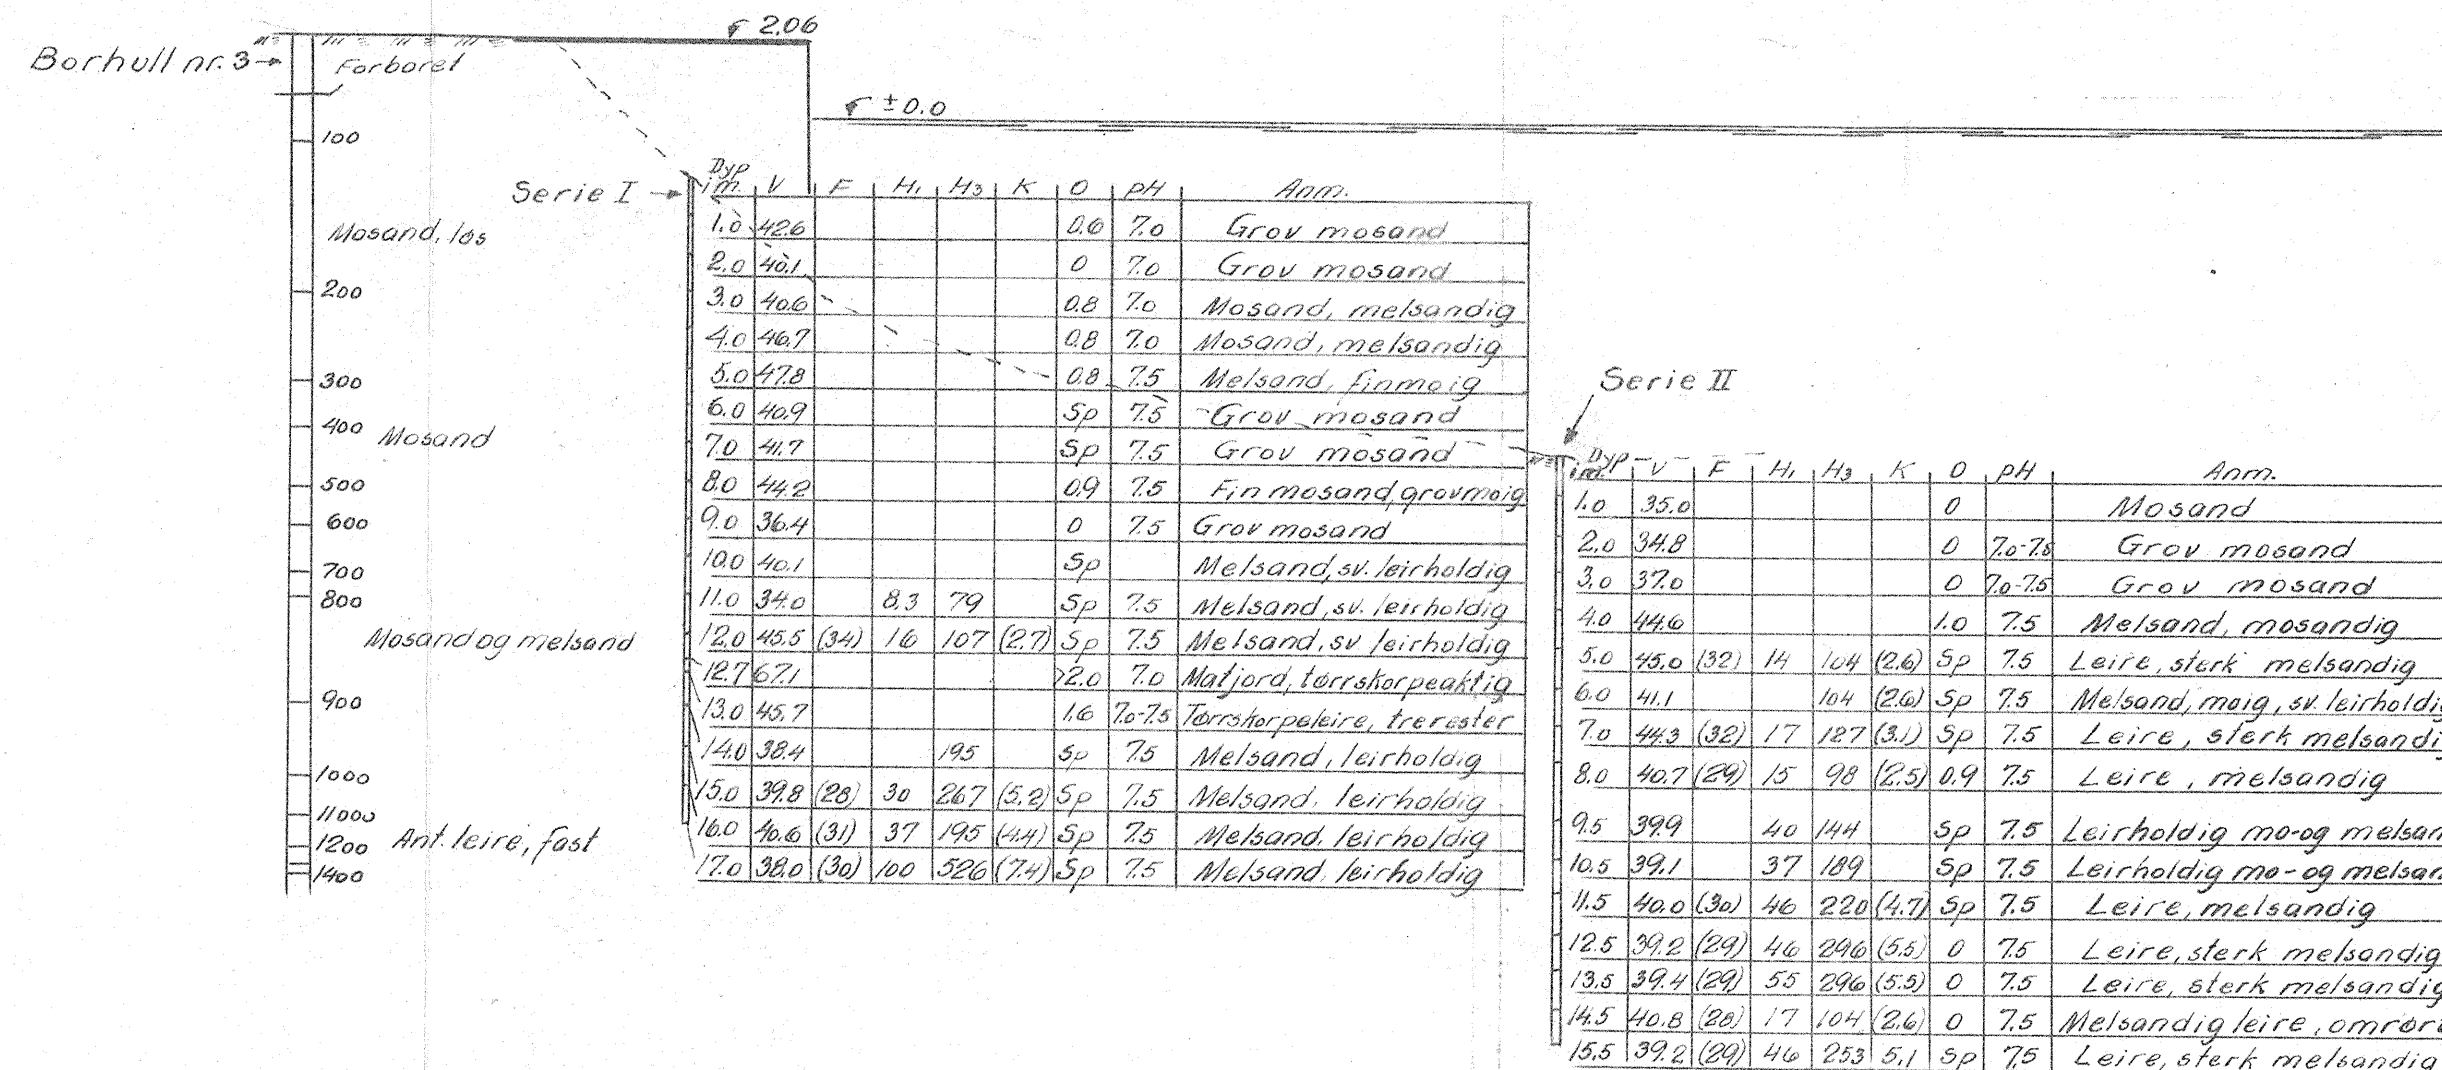 2.06
Borhull nr. 3
Forboret
± 0.0
100
Mosand, løs
200
300
400 Mosand
500
600
700
800
Mosand og melsand
900
1000
11000
1200 Ant. leire, fast
1400
Serie I
Dyp i m. V F H1 H3 K O pH Anm.
1.0 42.6 0.6 7.0 Grov mosand
2.0 40.1 0 7.0 Grov mosand
3.0 40.6 0.8 7.0 Mosand, melsandig
4.0 46.7 0.8 7.0 Mosand, melsandig
5.0 47.8 0.8 7.5 Melsand, finmoig
6.0 40.9 Sp 7.5 Grov mosand
7.0 41.7 Sp 7.5 Grov mosand
8.0 44.2 0.9 7.5 Fin mosand, grovmoig
9.0 36.4 0 7.5 Grov mosand
10.0 40.1 Sp Melsand, sv. leirholdig
11.0 34.0 8.3 79 Sp 7.5 Melsand, sv. leirholdig
12.0 45.5 (34) 16 107 (2.7) Sp 7.5 Melsand, sv leirholdig
12.7 67.1 >2.0 7.0 Matjord, tørrskorpeaktig
13.0 45.7 1.6 7.0-7.5 Tørrskorpeleire, trerester
14.0 38.4 195 Sp 7.5 Melsand, leirholdig
15.0 39.8 (28) 30 267 (5.2) Sp 7.5 Melsand, leirholdig
16.0 40.6 (31) 37 195 (4.4) Sp 7.5 Melsand, leirholdig
17.0 38.0 (30) 100 526 (7.4) Sp 7.5 Melsand, leirholdig
Serie II
Dyp i m. V F H1 H3 K O pH Anm.
1.0 35.0 0 Mosand
2.0 34.8 0 7.0-7.5 Grov mosand
3.0 37.0 0 7.0-7.5 Grov mosand
4.0 44.6 1.0 7.5 Melsand, mosandig
5.0 45.0 (32) 14 104 (2.6) Sp 7.5 Leire, sterk melsandig
6.0 41.1 104 (2.6) Sp 7.5 Melsand, moig, sv. leirholdi
7.0 44.3 (32) 17 127 (3.1) Sp 7.5 Leire, sterk melsandi
8.0 40.7 (29) 15 98 (2.5) 0.9 7.5 Leire, melsandig
9.5 39.9 40 144 Sp 7.5 Leirholdig mo- og melsan
10.5 39.1 37 189 Sp 7.5 Leirholdig mo- og melsan
11.5 40.0 (30) 46 220 (4.7) Sp 7.5 Leire, melsandig
12.5 39.2 (29) 46 296 (5.5) 0 7.5 Leire, sterk melsandig
13.5 39.4 (29) 55 296 (5.5) 0 7.5 Leire, sterk melsandig
14.5 40.8 (28) 17 104 (2.6) 0 7.5 Melsandig leire, omrørt
15.5 39.2 (29) 46 253 5.1 Sp 7.5 Leire, sterk melsandig